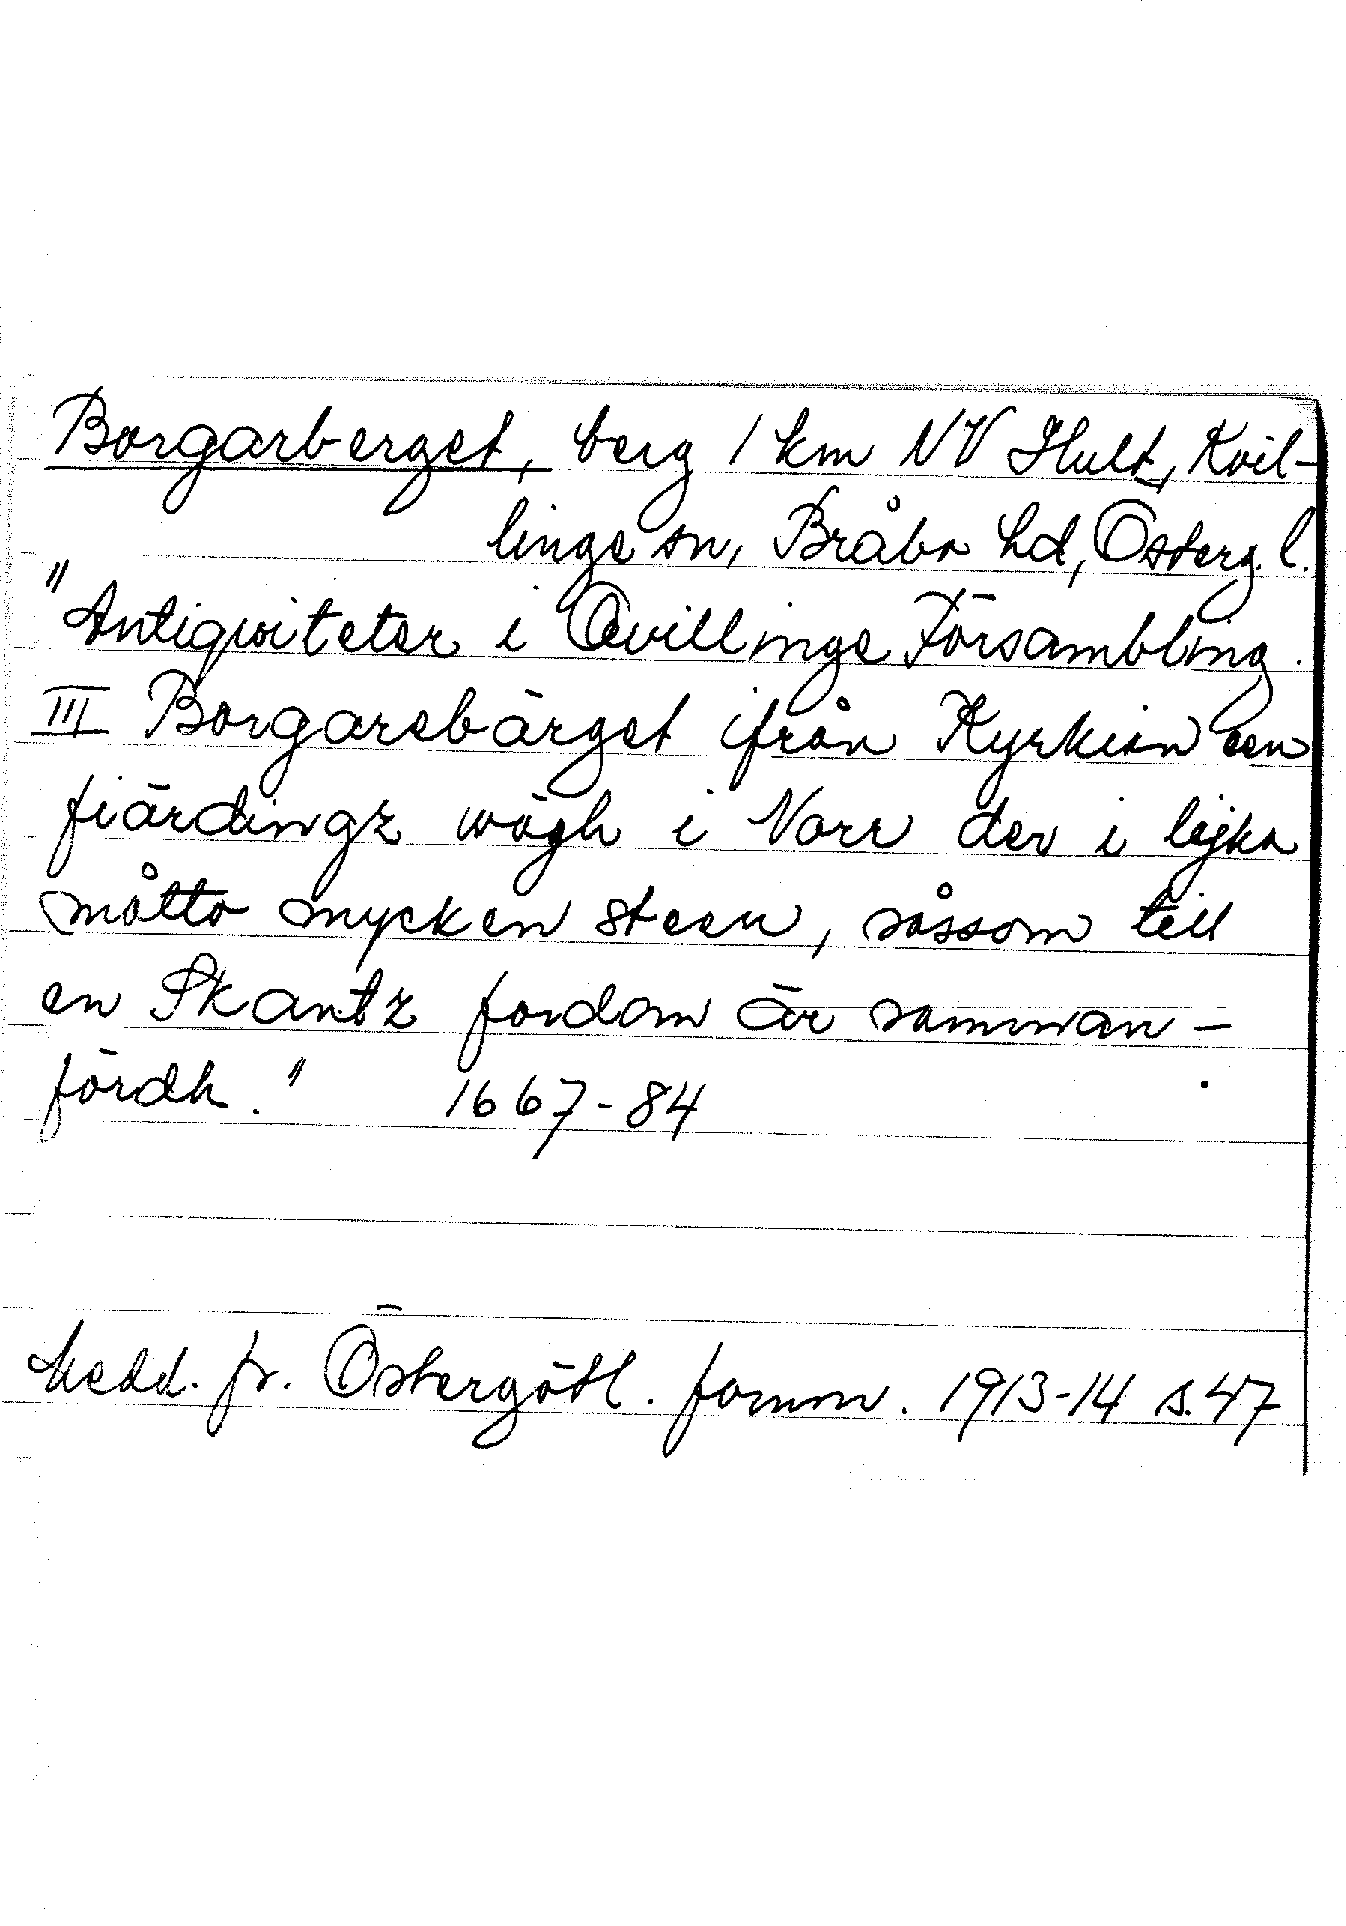 Borgarberget, berg 1 km NV Hult, Kvil-
linge sn, Bråbo hd, Österg. l.
"Antiqwiteter i Qvillinge Försambling.
III Borgarebärget ifrån Kyrkian een
fiärdingz wägh i Norr der i lijka
måtto mycken steen, såssom till
en Skantz fordom är samman-
fördh." 1667-84
Medd. fr. Östergötl. fornm. 1913-14 s. 47